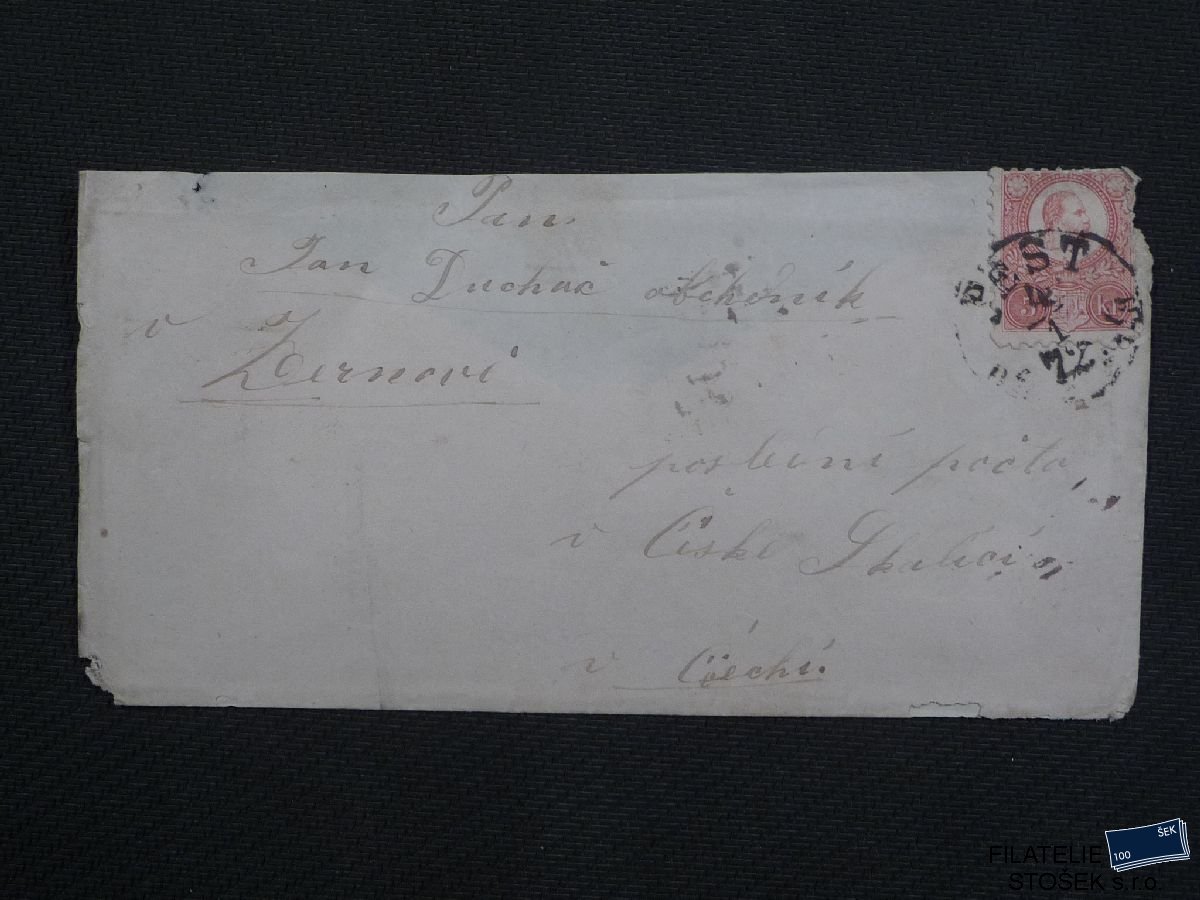 Pan
Jan Duchač obchodník
v Žernovi
poslední počta
v České Skalici
v Čechí.
PEST
5 kr
FILATELIE
STOŠEK s.r.o.
100 ŠEK